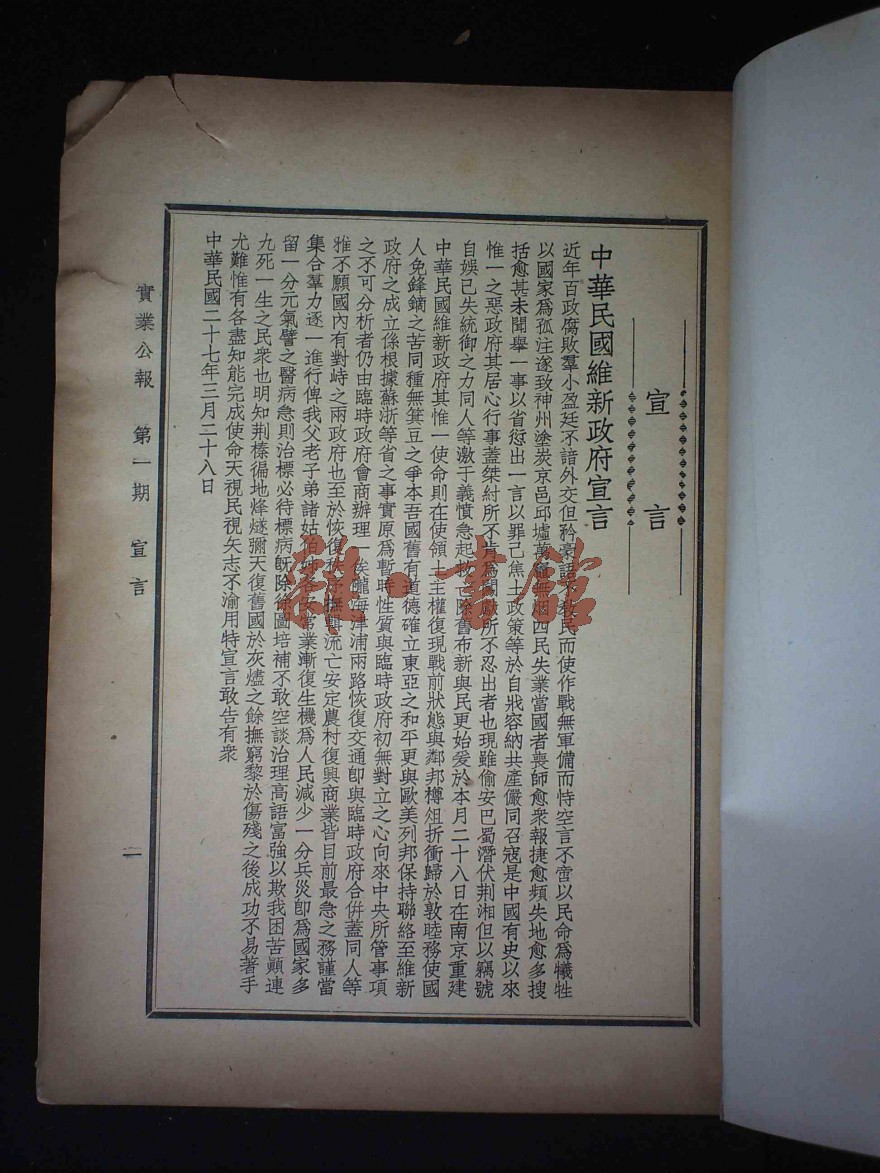 宣言
中華民國維新政府宣言
近年百政腐敗羣小盈廷不諳外交但矜豪語不教民而使作戰無軍備而恃空言不啻以民命爲犧牲
以國家爲孤注遂致神州塗炭京邑邱墟萬竈無烟四民失業當國者喪師愈衆報捷愈頻失地愈多搜
括愈甚未聞舉一事以省愆出一言以罪己焦土政策等於自戕容納共產儼同召寇是中國有史以來
惟一之惡政府其居心行事蓋桀紂所不肯爲闖獻所不忍出者也現雖偷安巴蜀潛伏荆湘但以竊號
自娛已失統御之力同人等激于義憤急起救亡除舊布新與民更始爰於本月二十八日在南京重建
中華民國維新政府其惟一使命則在使領土主權復現戰前狀態與鄰邦樽俎折衝歸於敦睦務使國
人免鋒鏑之苦同種無箕豆之爭本吾國舊有道德確立東亞之和平更與歐美列邦保持聯絡至維新
政府之成立係根據蘇浙等省之事實原爲暫時性質與臨時政府初無對立之心向來中央所管事項
之不可分析者仍由臨時政府會商辦理一俟隴海津浦兩路恢復交通卽與臨時政府合併蓋同人等
雅不願國內有對峙之兩政府也至於恢復秩序撫輯流亡安定農村復興商業皆目前最急之務謹當
集合羣力逐一進行俾我父老子弟諸姑伯姊各安常業漸復生機爲人民減少一分兵災卽爲國家多
留一分元氣譬之醫病急則治標必待標病旣除徐圖培補不敢空談治理高語富強以欺我困苦顚連
九死一生之民衆也明知荆榛徧地烽燧彌天復舊國於灰燼之餘撫窮黎於傷殘之後成功不易著手
尤難惟有各盡知能完成使命天視民視矢志不渝用特宣言敢告有衆
中華民國二十七年三月二十八日
實業公報 第一期 宣言
一
雜·書館